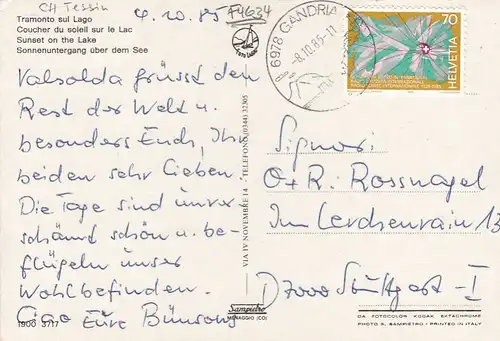 CH Tessin
Tramonto sul Lago
Coucher du soleil sur le Lac
Sunset on the Lake
Sonnenuntergang über dem See
4.10.85
F4634
6978 GANDRIA
-8.10.85-17
70
HELVETIA
Valsolda grüsst den
Rest der Welt u.
besonders Euch, Ihr
beiden sehr Lieben.
Die Tage sind unver-
schämt schön u. be-
flügeln unser
Wohlbefinden.
Ciao Eure
VIA IV NOVEMBRE 14 - TELEFONO (0344) 32305
Sampietro
MENAGGIO (CO)
Signori
O + R. Rossnagel
Im Lerchenrain 13
D 7000 Stuttgart - 1
1900 3717
DA FOTOCOLOR KODAK EKTACHROME
PHOTO A. SAMPIETRO - PRINTED IN ITALY